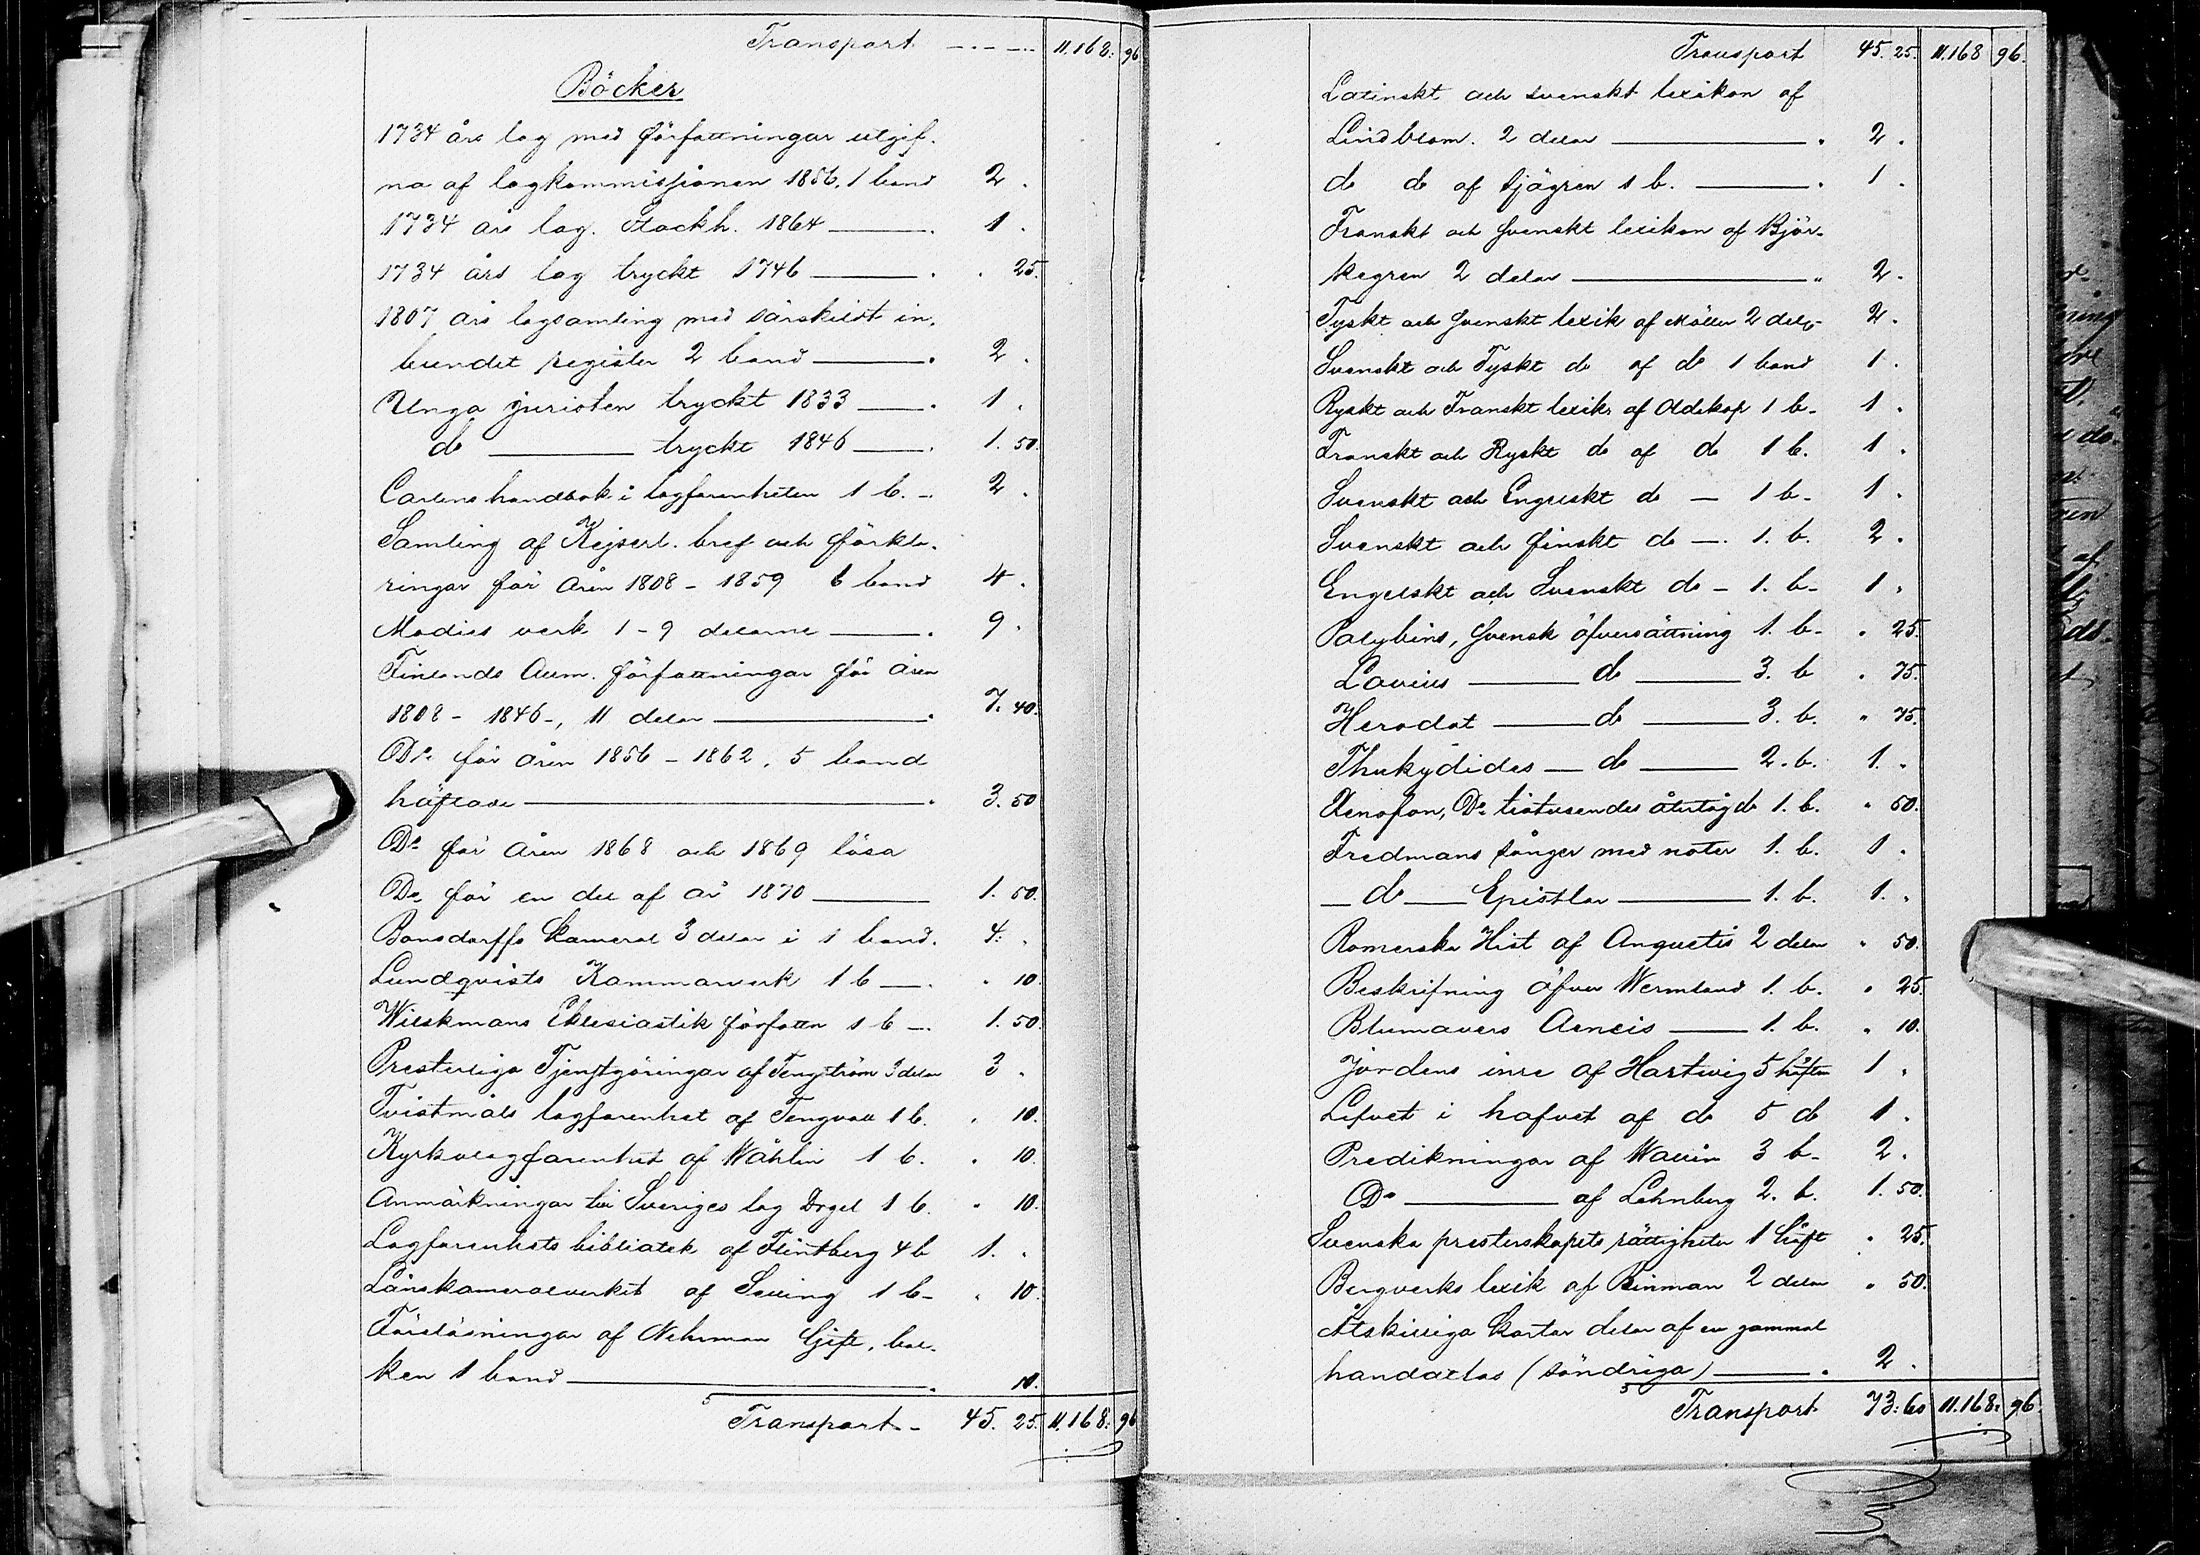 Transport 11.168. 96
Böcker
1734 års lag med författningar utgif-
na af lagkommissionen 1856. 1 band 2.
1734 års lag. Stockh. 1864 1.
1734 års lag tryckt 1746 . 25.
1807 års lagsamling med särskildt in-
bundet register 2 band 2.
Unga juristen tryckt 1833 1.
do tryckt 1846 1. 50.
Carlens handbok i lagfarenheten 1 b. 2.
Samling af Kejserl. bref och förkla-
ringar för åren 1808 - 1859 6 band 4.
Modées verk 1-9 delarne 9.
Finlands Allm. författningar för åren
1808 - 1846, 11 delar 7. 40.
Do för åren 1856 - 1862, 5 band
häftade 3. 50
Do för åren 1868 och 1869 lösa
Do för en del af år 1870 1. 50.
Bonsdorffs Kameral 3 delar i 1 band. 4.
Lundqvists Kammarverk 1 b . 10.
Wilskmans Eklesiastik författn 1 b 1. 50.
Presterliga Tjenstgöringar af Tengström 3 delar 3.
Tvistmåls lagfarenhet af Tengvall 1 b. . 10.
Kyrkolagfarenhet af Wåhlin 1 b. . 10.
Anmärkningar till Sveriges lag 1 b. . 10.
Lagfarenhets bibliotek af Flintberg 4 b 1.
Länskameralverket af 1 b . 10.
Föreläsningar af Nehrman Gift. bal-
ken 1 band 10.
Transport 45. 25. 11.168. 96
Transport 45. 25. 11.168 96.
Latinskt och svenskt lexikon af
Lindblom. 2 delar 2.
do do af Sjögren 1 b. 1.
Franskt och Svenskt lexikon af Björ-
kegren 2 delar 2.
Tyskt och Svenskt lexik af Möller 2 delar 2.
Svenskt och Tyskt do af do 1 band 1.
Ryskt och Franskt lexik. af Oldekop 1 b. 1.
Franskt och Ryskt do af do 1 b. 1.
Svenskt och Engelskt do - 1 b. 1.
Svenskt och finskt do - 1. b. 2.
Engelskt och Svenskt do - 1. b. 1.
Polybius, Svensk öfversättning 1. b. . 25.
Livius do 3. b . 75.
Herodot do 3. b. . 75.
Thukydides do 2. b. 1.
Xenofon, Do tiotusendes återtåg do 1. b. . 50.
Fredmans sånger med noter 1. b. 1.
do Epistlar 1. b. 1.
Romerska Hist af Anquetil 2 delar . 50.
Beskrifning öfver Wermland 1. b. . 25.
Blumauers Aeneis 1. b. . 10.
Jordens inre af Hartwig 5 häften 1.
Lifvet i hafvet af do 5 do 1.
Predikningar af Wallin 3 b. 2.
Do af Lehnberg 2. b. 1. 50.
Svenska presterskapets rättigheter 1 häft . 25.
Bergverks lexik af Rinman 2 delar . 50.
Åtskilliga kartor delar af en gammal
handatlas (söndriga) 2.
Transport 73. 60 11.168. 96.